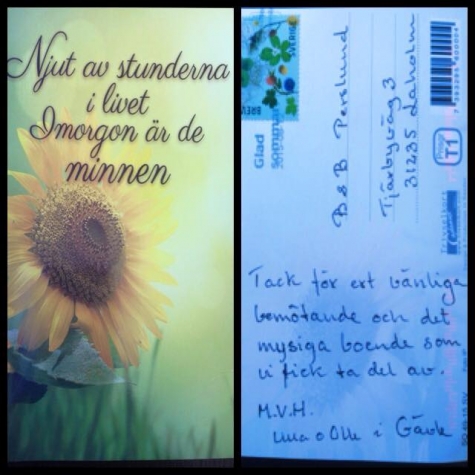 Njut av stunderna
i livet
Imorgon är de
minnen
SVERIGE
BREV
Glad
sommar
B&B Perslund
Tjärbyväg 3
31235 Laholm
Prisgr.
T1
Tack för ert vänliga
bemötande och det
mysiga boende som
vi fick ta del av.
M.V.H.
o Olle i Gävle